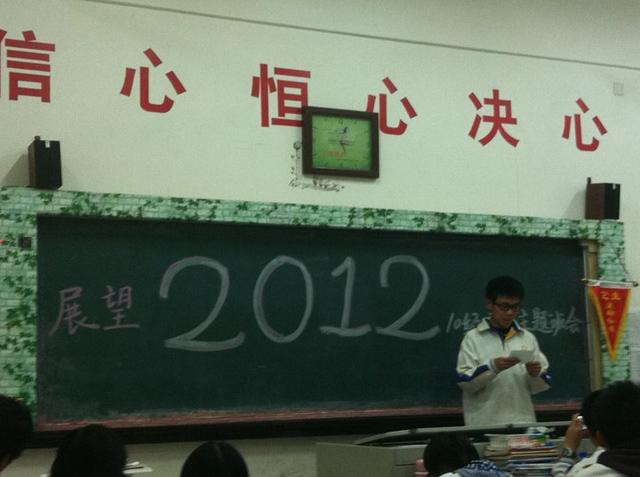 信心 恒心 决心
展望 2012
主题班会